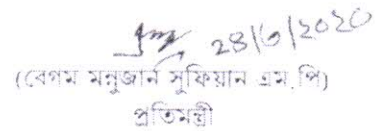 28/6/2020
(বেগম মন্নুজান সুফিয়ান এম.পি)
প্রতিমন্ত্রী